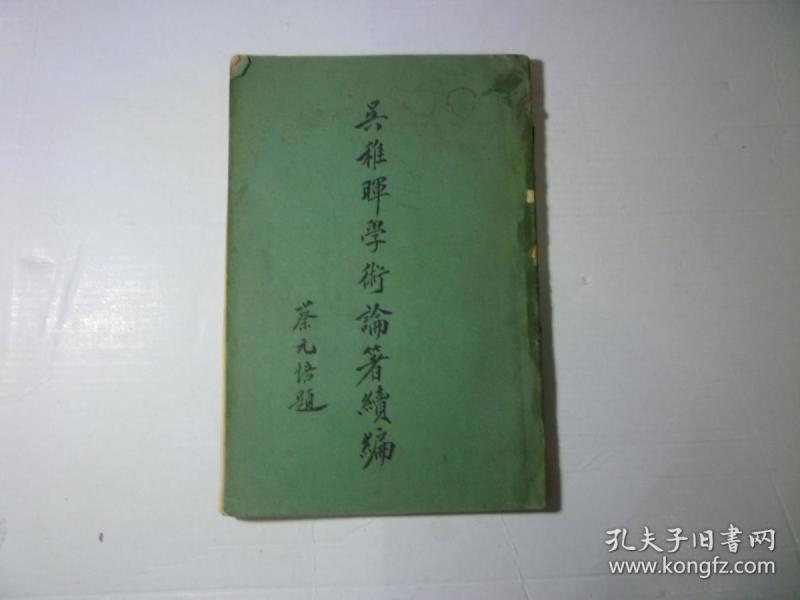 吳稚暉學術論著續編
蔡元培題
孔夫子旧书网
www.kongfz.com